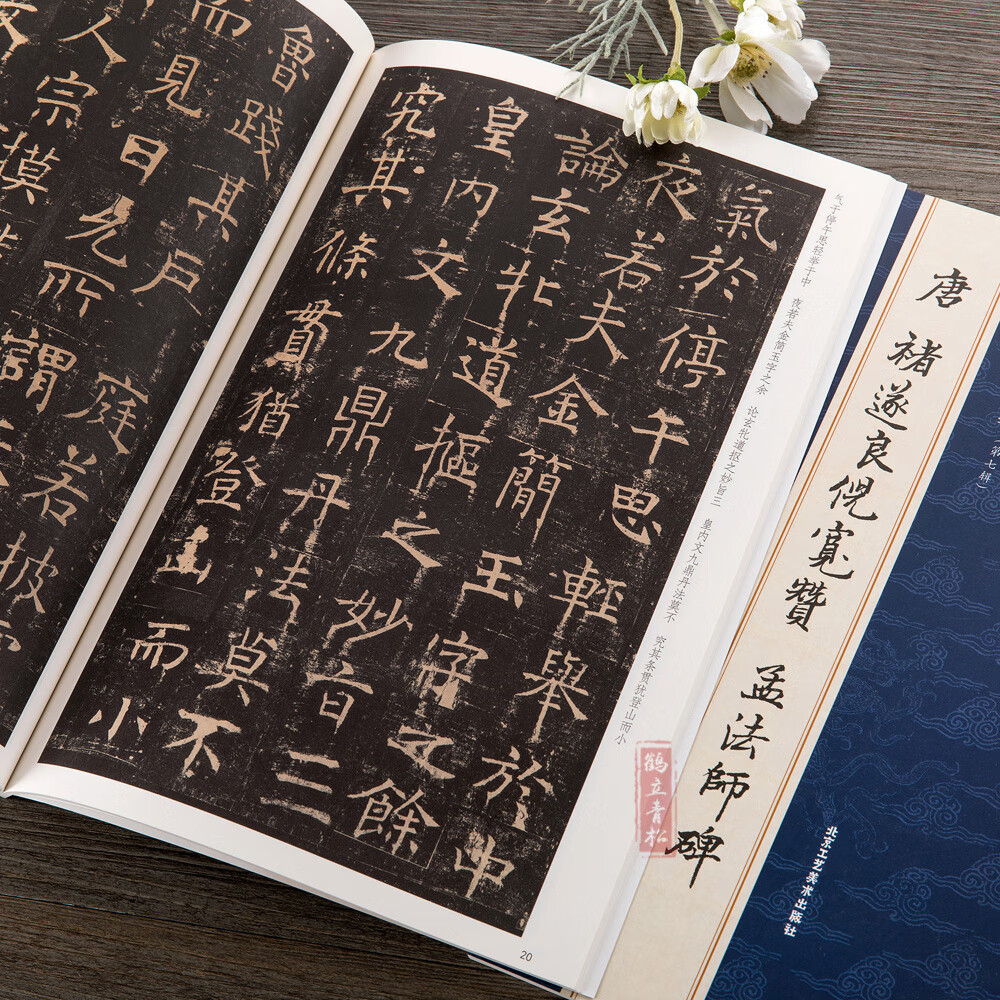 氣於停午思輕舉於中
夜若夫金簡玉字之餘
論玄牝道樞之妙旨三
皇內文九鼎丹法莫不
究其條貫猶登山而小
魯踐其戶庭若披
而見日允所謂
人宗摸
气于停午思轻举于中 夜若夫金简玉字之余 论玄牝道枢之妙旨三 皇内文九鼎丹法莫不 究其条贯犹登山而小
20
唐 褚遂良倪寬贊 孟法師碑
第七辑）
北京工艺美术出版社
鹤立青松